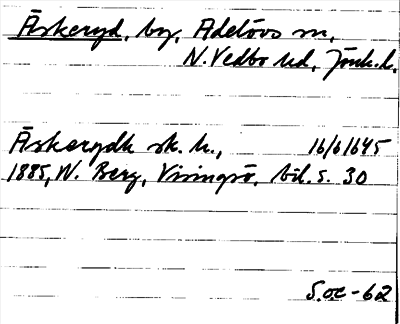 Äskeryd, by, Adelövs sn,
N. Vedbo hd, Jönk. l.
Äskerydh sk. h., 16/6 1645
1885, W. Berg, Visingsö, bil. s. 30
S.oc-62